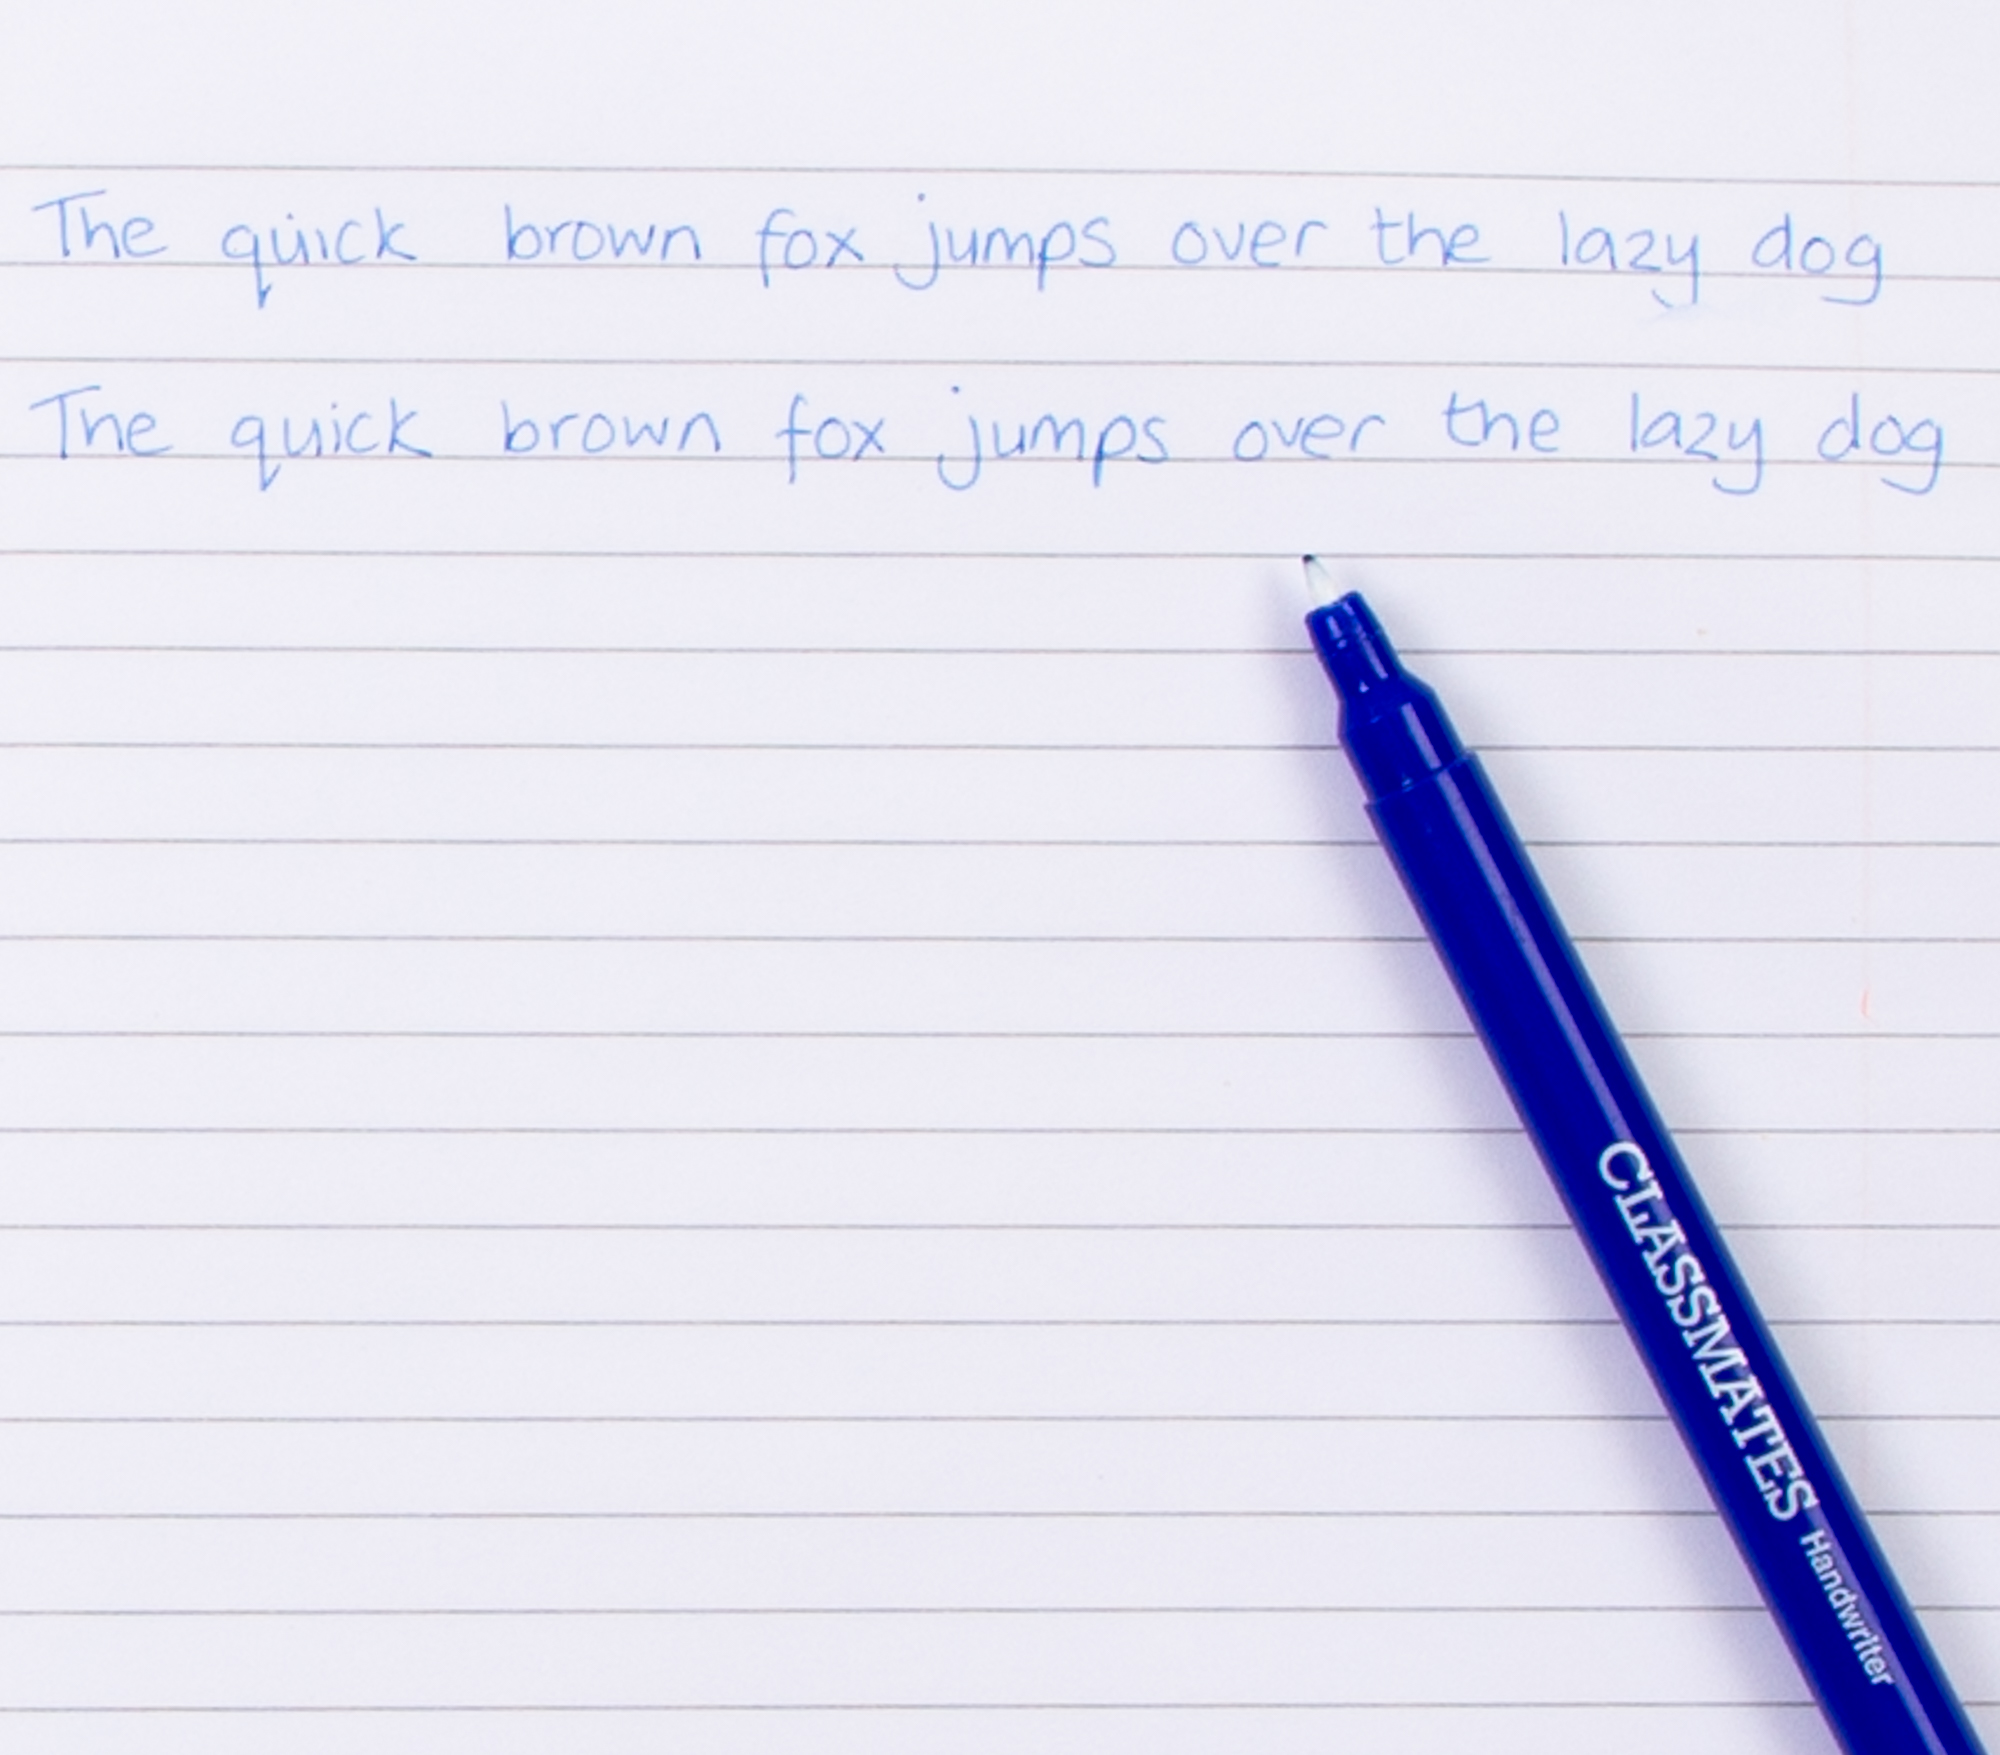 The quick brown fox jumps over the lazy dog
The quick brown fox jumps over the lazy dog
CLASSMATES Handwriter